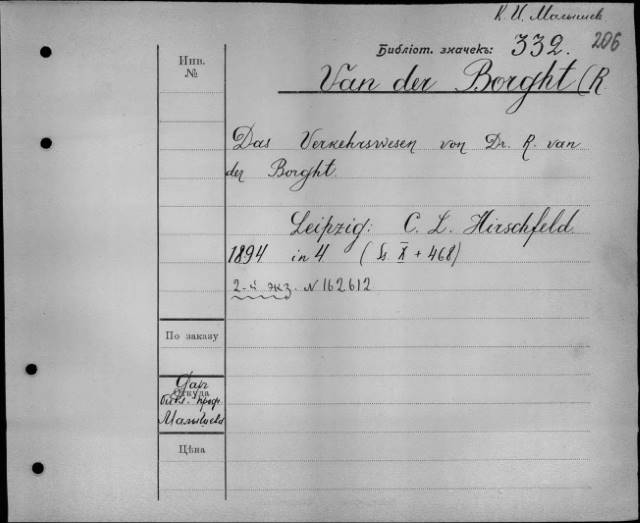 К. И. Малышев
Библіот. значекъ: 332. 206
Инв.
№
Van der Borght (R
Das Verkehrswesen von Dr. R. van
der Borght.
Leipzig: C. L. Hirschfeld
1894 in 4 (S. X + 468)
2-й экз. N 162612
По заказу
Дар
Откуда
библ. проф.
Малышева
Цѣна